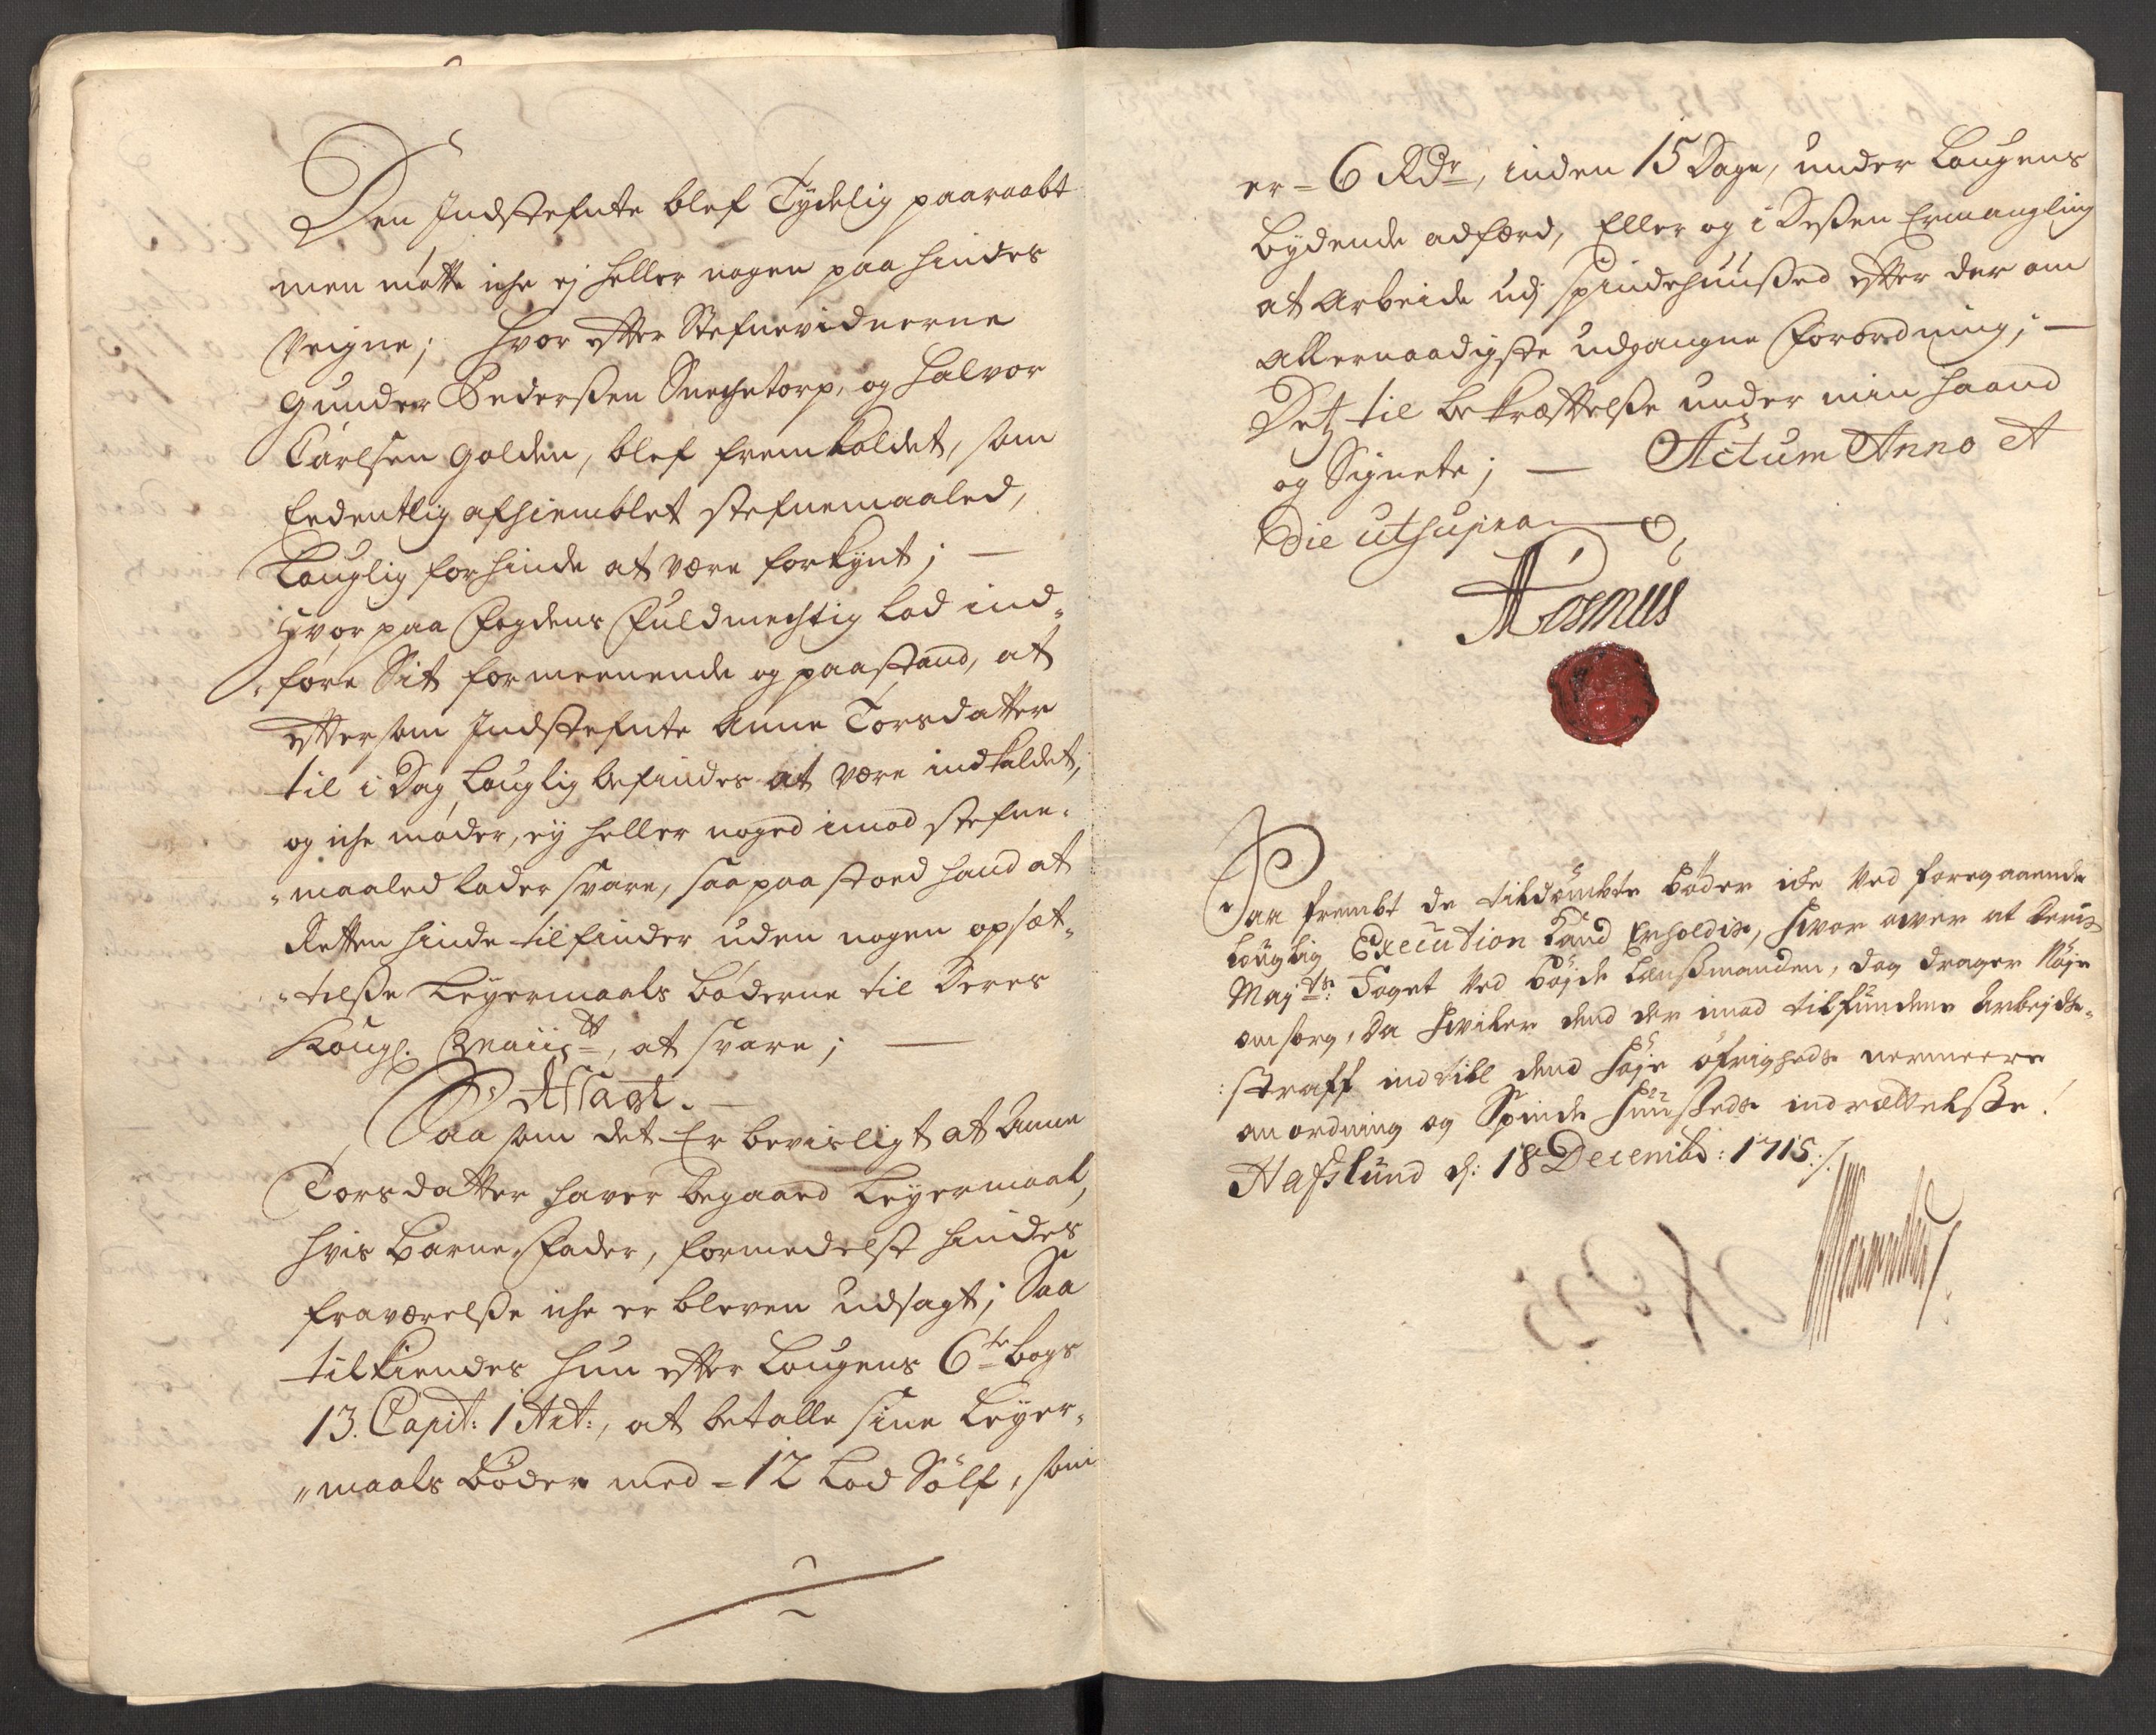 Den Indstefnte blef Tydelig paaraabt
men møtte iche ej heller nogen paa hindes
Veigne; hvor efter Stefnevidnerne
Gunder Pederssen Snechetorp, og Halvor
Carlsen Golden, blef fremkaldet, som
Eedentlig afhiemblet stefnemaaled,
Louglig for hinde at være forkynt; —
Hvor paa Fogdens Fuldmechtig lod ind-
føre Sit formeenende og paastand, at
eftersom Indstefnte Anne Torsdatter
til i Dag Louglig befindes at være indkaldet,
og iche møder, ey heller noged imod stefne-
maaled lader svare, saa paastoed hand at
Retten hinde tilfinder uden nogen opsæt-
telsse Leyermaals bøderne til Deres
Kongl. Maiistt, at svare; —
Afsagt. —
Saa som det Er bevisligt at Anne
Torsdatter haver begaaed Leyermaal,
hvis Barne Fader, formedelst hindes
fraværelsse iche er bleven udsagt; Saa
tilkiendes hun efter Lougens 6te bogs
13. Capit: 1 Art:, at betalle sine Leyer-
maals bøder med = 12 Lod Sølf, som
er = 6 Rdr, inden 15 Dage, under Lougens
bydende adfærd, Eller og i Dessen Ermangling
at Arbeide udj Spindehuussed efter der om
allernaadigste udgangne Forordning; —
Detz til bekræftelsse under min haand
og Signete; — Actum Anno Et
Die ut supra
Saa frembt de tildømbte bøder icke Ved foregaaende
Louglig Execution kand Erholdes, hvor over at Deris
Mayts: Foget Ved bøjde Lensmanden, dag drager Nøje
omsorg, da hviler dend der imod tilfundene Arbejds-
straff indtill dend høje øfrigheds nermeere
anordning og Spinde huussets indrættelsse!
Hafslund d: 18 Decembr: 1715 ./.